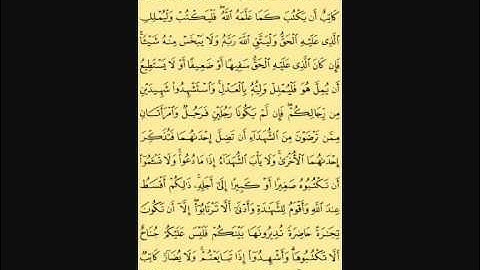 كَاتِبٌ أَن يَكْتُبَ كَمَا عَلَّمَهُ ٱللَّهُ ۚ فَلْيَكْتُبْ وَلْيُمْلِلِ
ٱلَّذِى عَلَيْهِ ٱلْحَقُّ وَلْيَتَّقِ ٱللَّهَ رَبَّهُۥ وَلَا يَبْخَسْ مِنْهُ شَيْـًٔا ۚ
فَإِن كَانَ ٱلَّذِى عَلَيْهِ ٱلْحَقُّ سَفِيهًا أَوْ ضَعِيفًا أَوْ لَا يَسْتَطِيعُ
أَن يُمِلَّ هُوَ فَلْيُمْلِلْ وَلِيُّهُۥ بِٱلْعَدْلِ ۚ وَٱسْتَشْهِدُوا۟ شَهِيدَيْنِ
مِن رِّجَالِكُمْ ۖ فَإِن لَّمْ يَكُونَا رَجُلَيْنِ فَرَجُلٌ وَٱمْرَأَتَانِ
مِمَّن تَرْضَوْنَ مِنَ ٱلشُّهَدَآءِ أَن تَضِلَّ إِحْدَىٰهُمَا فَتُذَكِّرَ
إِحْدَىٰهُمَا ٱلْأُخْرَىٰ ۚ وَلَا يَأْبَ ٱلشُّهَدَآءُ إِذَا مَا دُعُوا۟ ۚ وَلَا تَسْـَٔمُوٓا۟
أَن تَكْتُبُوهُ صَغِيرًا أَوْ كَبِيرًا إِلَىٰٓ أَجَلِهِۦ ۚ ذَٰلِكُمْ أَقْسَطُ
عِندَ ٱللَّهِ وَأَقْوَمُ لِلشَّهَٰدَةِ وَأَدْنَىٰٓ أَلَّا تَرْتَابُوٓا۟ ۖ إِلَّآ أَن تَكُونَ
تِجَٰرَةً حَاضِرَةً تُدِيرُونَهَا بَيْنَكُمْ فَلَيْسَ عَلَيْكُمْ جُنَاحٌ
أَلَّا تَكْتُبُوهَا ۗ وَأَشْهِدُوٓا۟ إِذَا تَبَايَعْتُمْ ۚ وَلَا يُضَآرَّ كَاتِبٌ